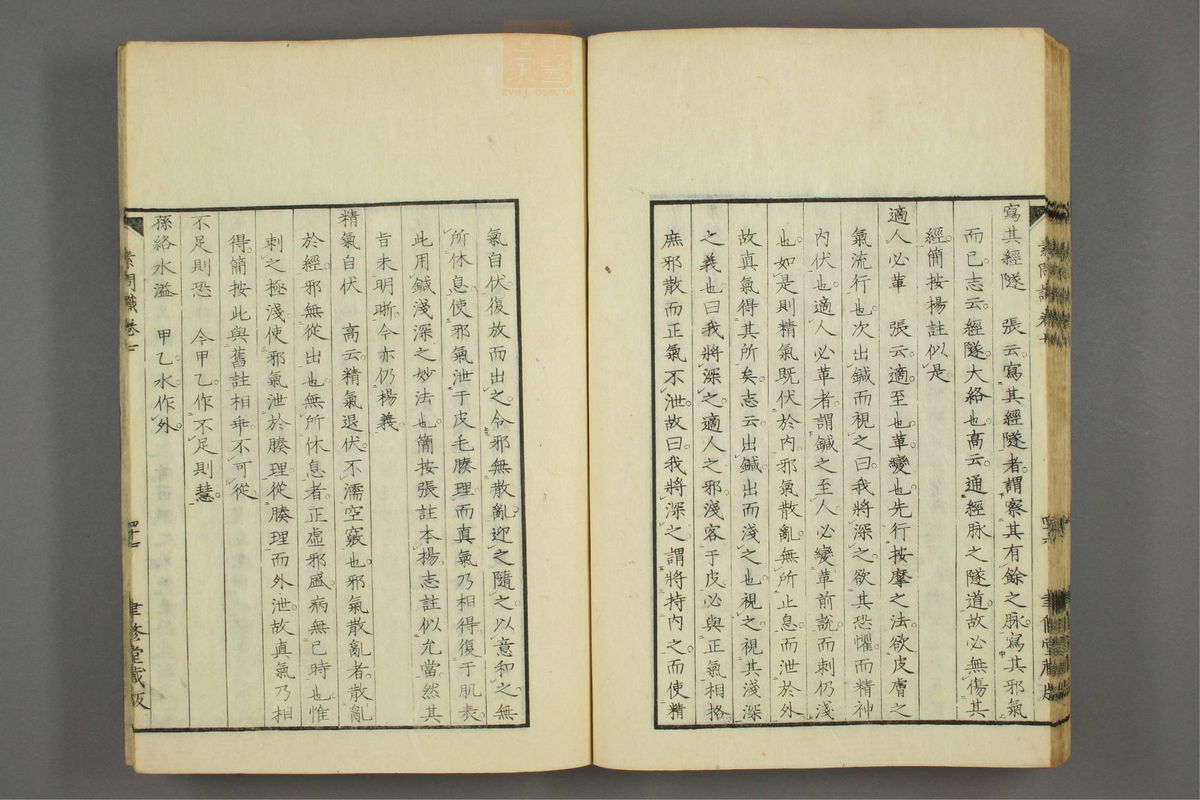 寫其經隧　張云寫其經隧者謂察其有餘之脉寫其邪氣
而已志云經隧大絡也高云通經脉之隧道故必無傷其
經簡按楊註似是
適人必革　張云適至也革變也先行按摩之法欲皮膚之
氣流行也次出鍼而視之曰我將深之欲其恐懼而精神
内伏也適人必革者謂鍼之至人必變革前説而刺仍淺
也如是則精氣既伏於内邪氣散亂無所止息而泄於外
故真氣得其所矣志云出鍼出而淺之也視之視其淺深
之義也曰我將深之適人之邪淺客于皮必與正氣相格
庶邪散而正氣不泄故曰我將深之謂將持内之而使精
氣自伏復放而出之令邪無散亂迎之隨之以意和之無
所休息使邪氣泄于皮毛腠理而真氣乃相得復于肌表
此用鍼淺深之妙法也簡按張註本楊志註似允當然其
旨未明晰今亦仍楊義
精氣自伏　高云精氣退伏不濡空竅也邪氣散亂者散亂
於經邪無從出也無所休息者正虛邪盛病無已時也惟
刺之極淺使邪氣泄於腠理從腠理而外泄故真氣乃相
得簡按此與舊註相乖不可從
不足則恐　今甲乙作不足則慧
孫絡水溢　甲乙水作外
素問識卷七
四十七
聿修堂藏版